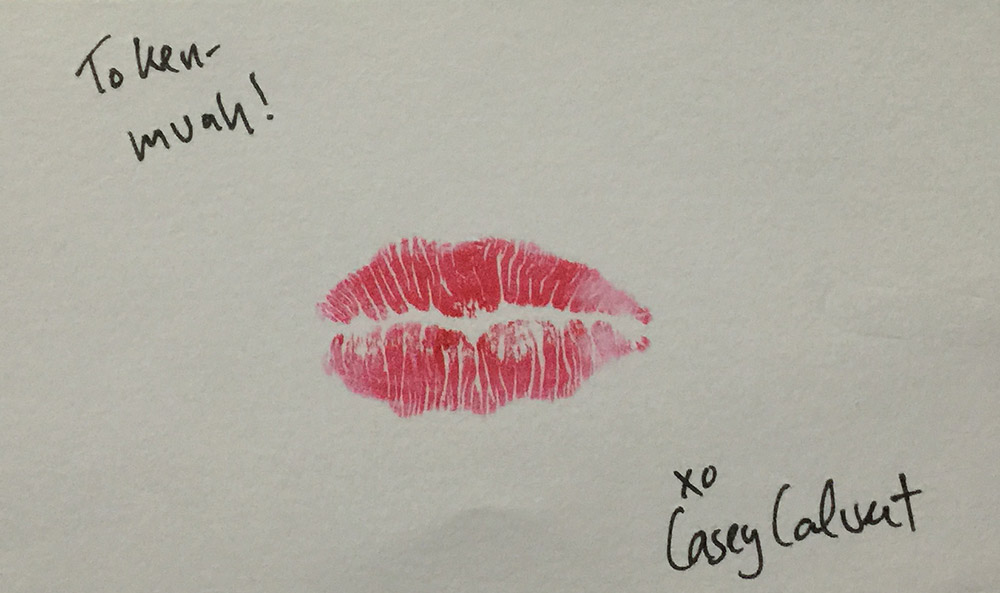 To Ken-
muah!
xo
Casey Calvert